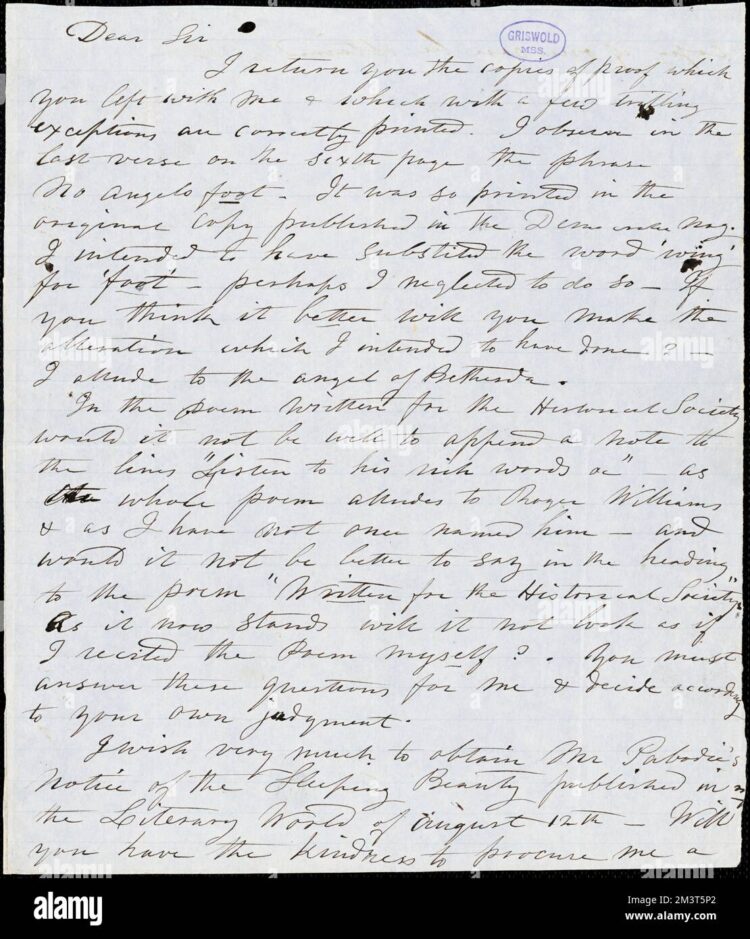 Dear Sir
GRISWOLD
MSS.
I return you the copies of proof which
you left with me & which with a few trifling
exceptions are correctly printed. I observe in the
last verse on the sixth page the phrase
No angels foot - It was so printed in the
original copy published in the Democratic mag.
I intended to have substited the word 'wing'
for 'foot' - perhaps I neglected to do so - If
you think it better will you make the
alteration which I intended to have done? -
I allude to the angel of Bethesda.
In the poem written for the Historical Society
would it not be well to append a note to
the lines "Listen to his rich words &c" - as
whole poem alludes to Roger Williams
& as I have not once named him - and
would it not be better to say in the heading
to the poem "Written for the Historical Society"
As it now stands will it not look as if
I recited the Poem myself?. You must
answer these questions for me & decide according
to your own judgment.
I wish very much to obtain Mr Pabodie's
Notice of the Sleeping Beauty published in
the Literary World of august 12th - Will
you have the kindness to procure me a
alamy
Image ID: 2M3T5P2
www.alamy.com